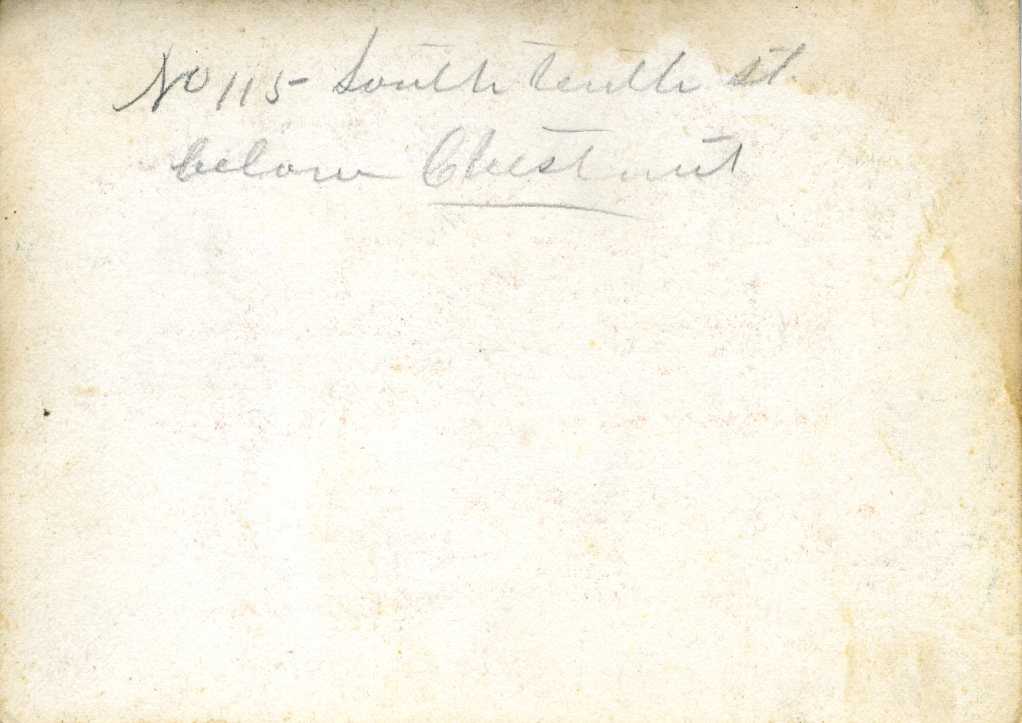 No 115 South tenth st.
below Chestnut